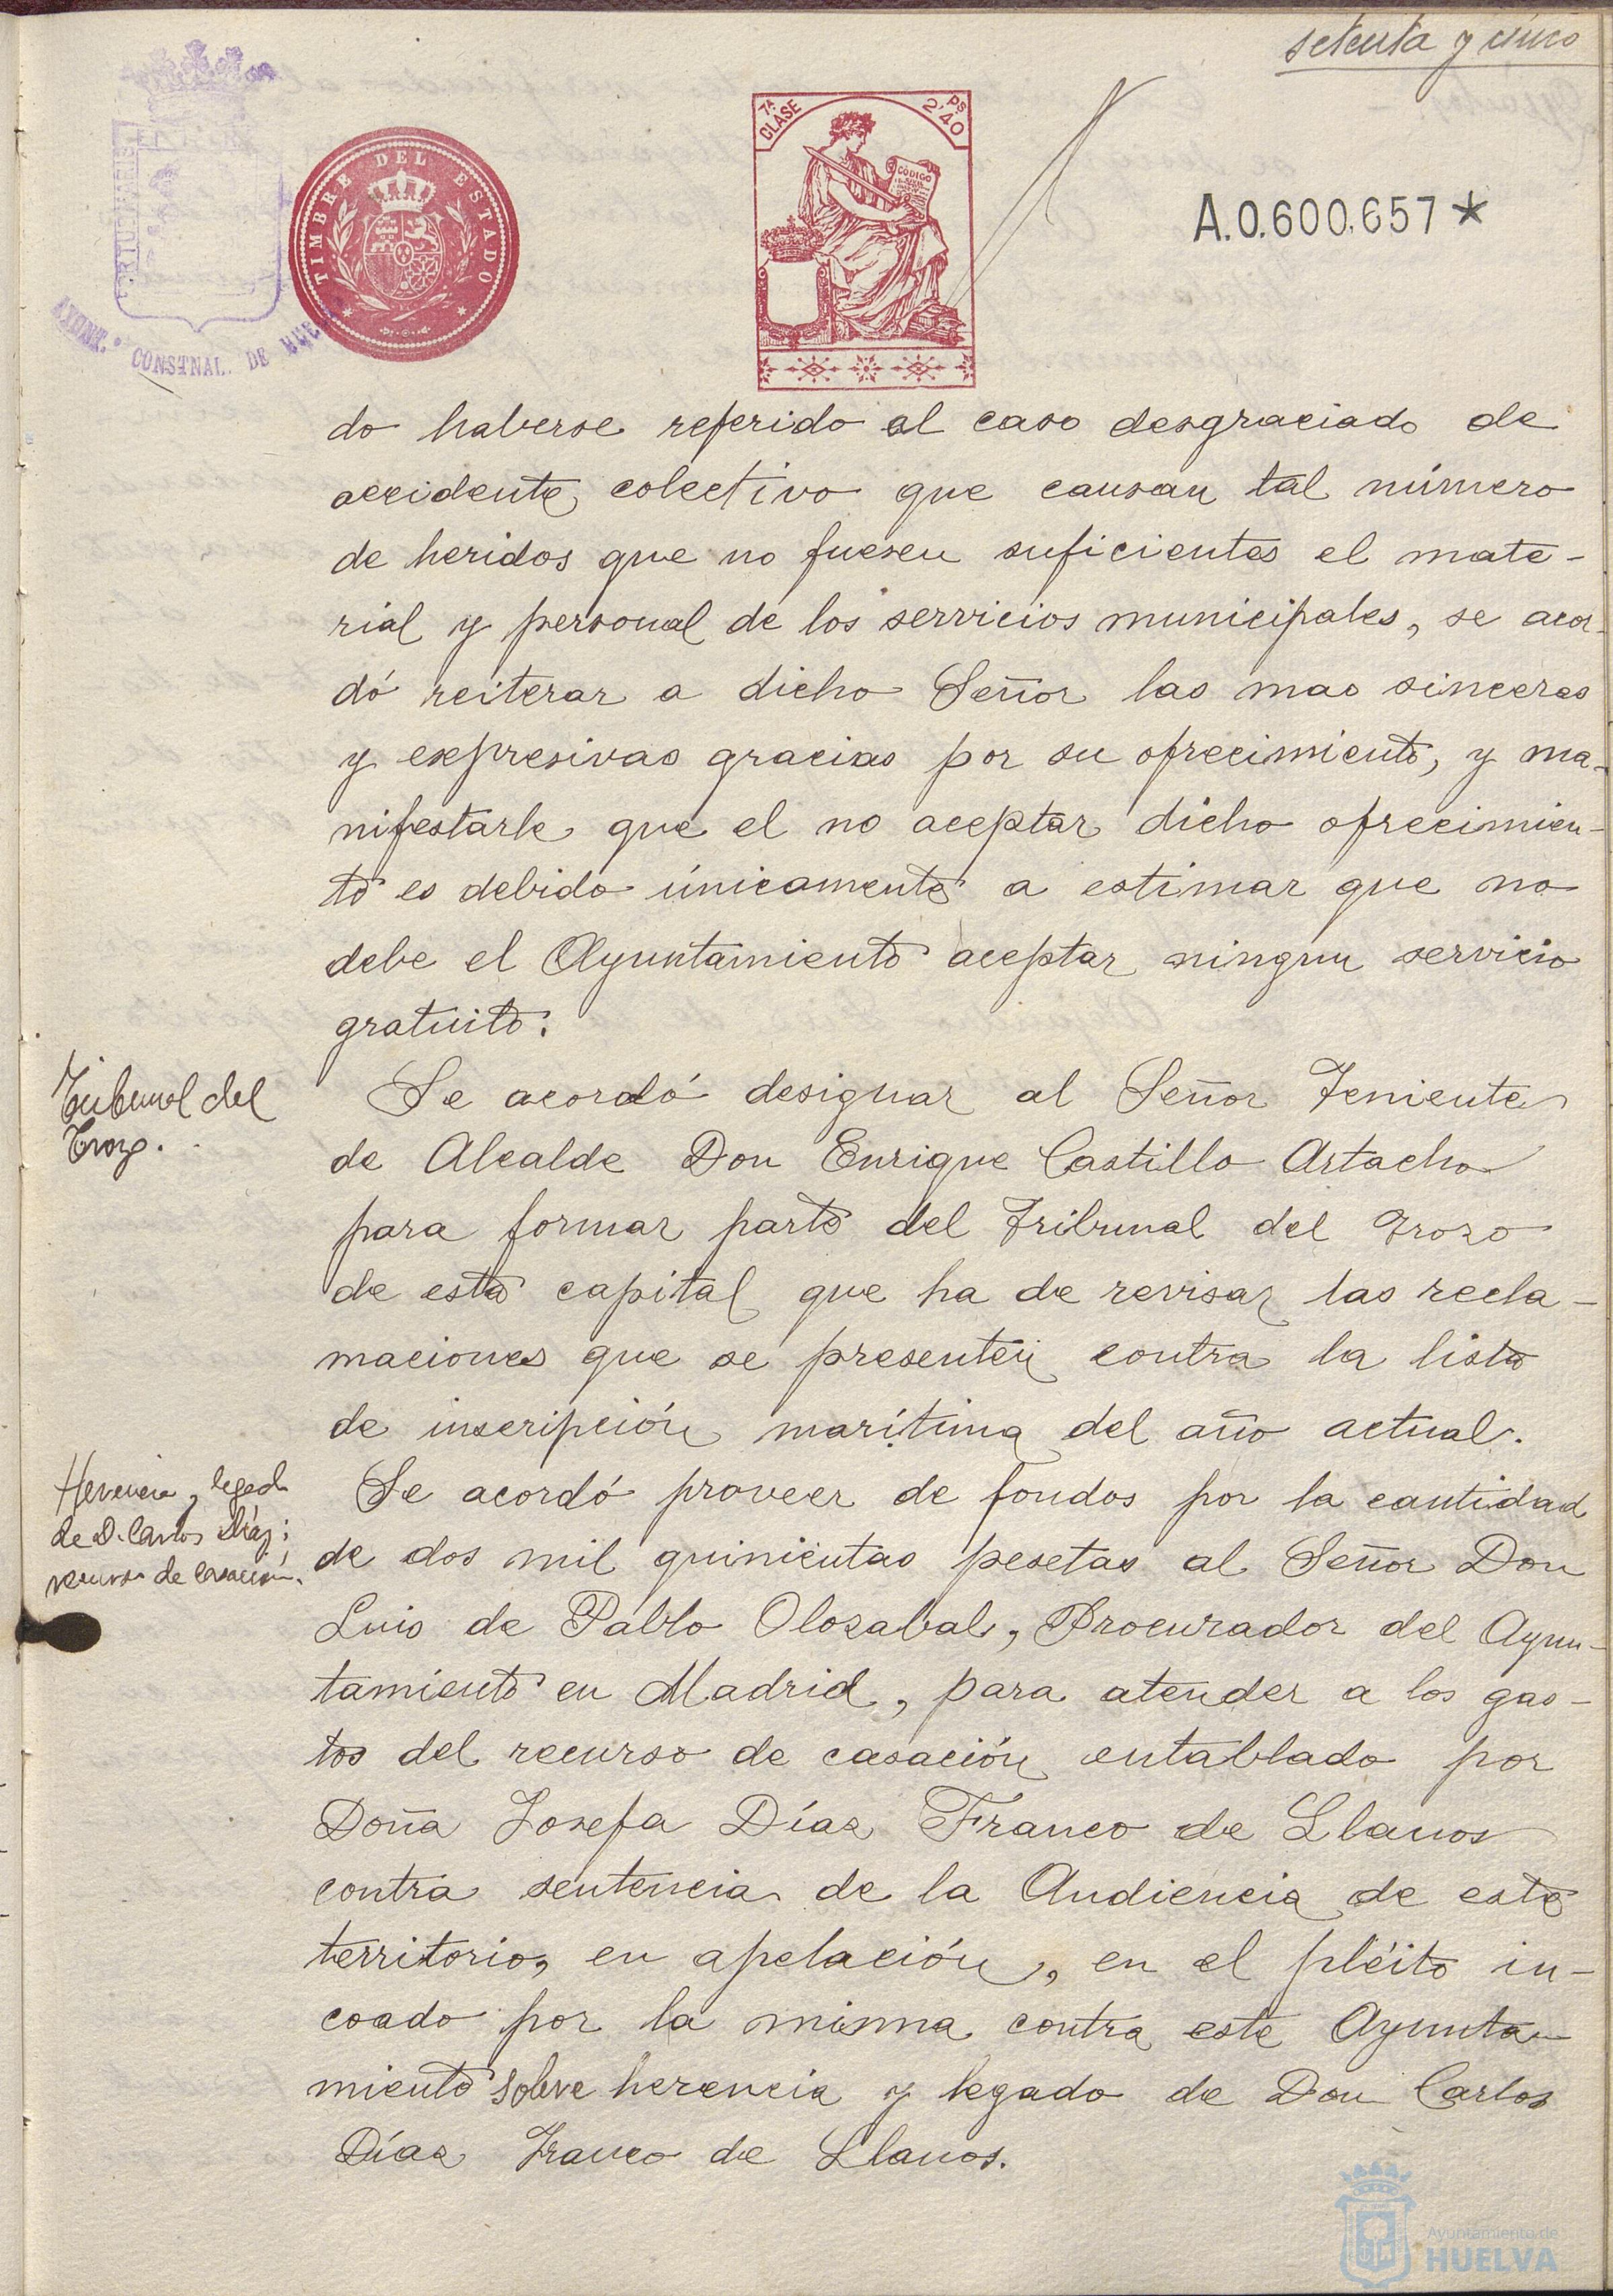 setenta y cinco
TIMBRE DEL ESTADO
7ª CLASE
2'40 Ps
CÓDIGO
A.0.600.657*
AYUNT.º CONSTNAL. DE HUELVA
do haberse referido al caso desgraciado de
accidente colectivo que causan tal número
de heridos que no fuesen suficientes el mate-
rial y personal de los servicios municipales, se acor-
dó reiterar a dicho Señor las mas sinceras
y expresivas gracias por su ofrecimiento, y ma-
nifestarle que el no aceptar dicho ofrecimien-
to es debido únicamente a estimar que no
debe el Ayuntamiento aceptar ningun servicio
gratuito.
Tribunal del
Trozo.
Se acordó designar al Señor Teniente
de Alcalde Don Enrique Castillo Artacho
para formar parte del Tribunal del Trozo
de esta capital que ha de revisar las recla-
maciones que se presenten contra la lista
de inscripción marítima del año actual.
Herencia y legado
de D. Carlos Díaz;
recurso de casación.
Se acordó proveer de fondos por la cantidad
de dos mil quinientas pesetas al Señor Don
Luis de Pablo Olozabal, Procurador del Ayun-
tamiento en Madrid, para atender a los gas-
tos del recurso de casación entablado por
Doña Josefa Díaz Franco de Llanos
contra sentencia de la Audiencia de este
territorio, en apelación, en el pléito in-
coado por la misma contra este Ayunta-
miento sobre herencia y legado de Don Carlos
Díaz Franco de Llanos.
Ayuntamiento de
HUELVA